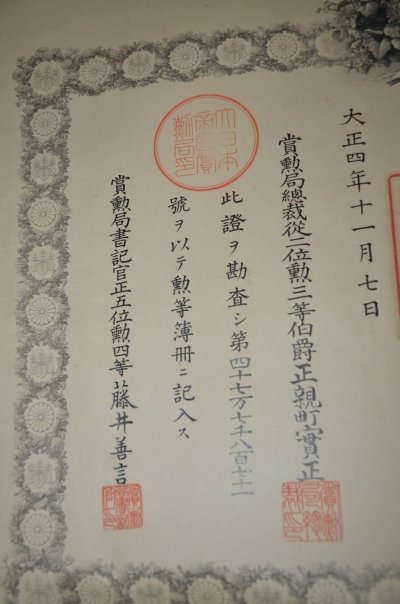 大正四年十一月七日
賞勲局總裁從二位勲三等伯爵正親町實正
此證ヲ勘査シ第四十七万七千八百七十一
號ヲ以テ勲等簿冊ニ記入ス
賞勲局書記官正五位勲四等藤井善言